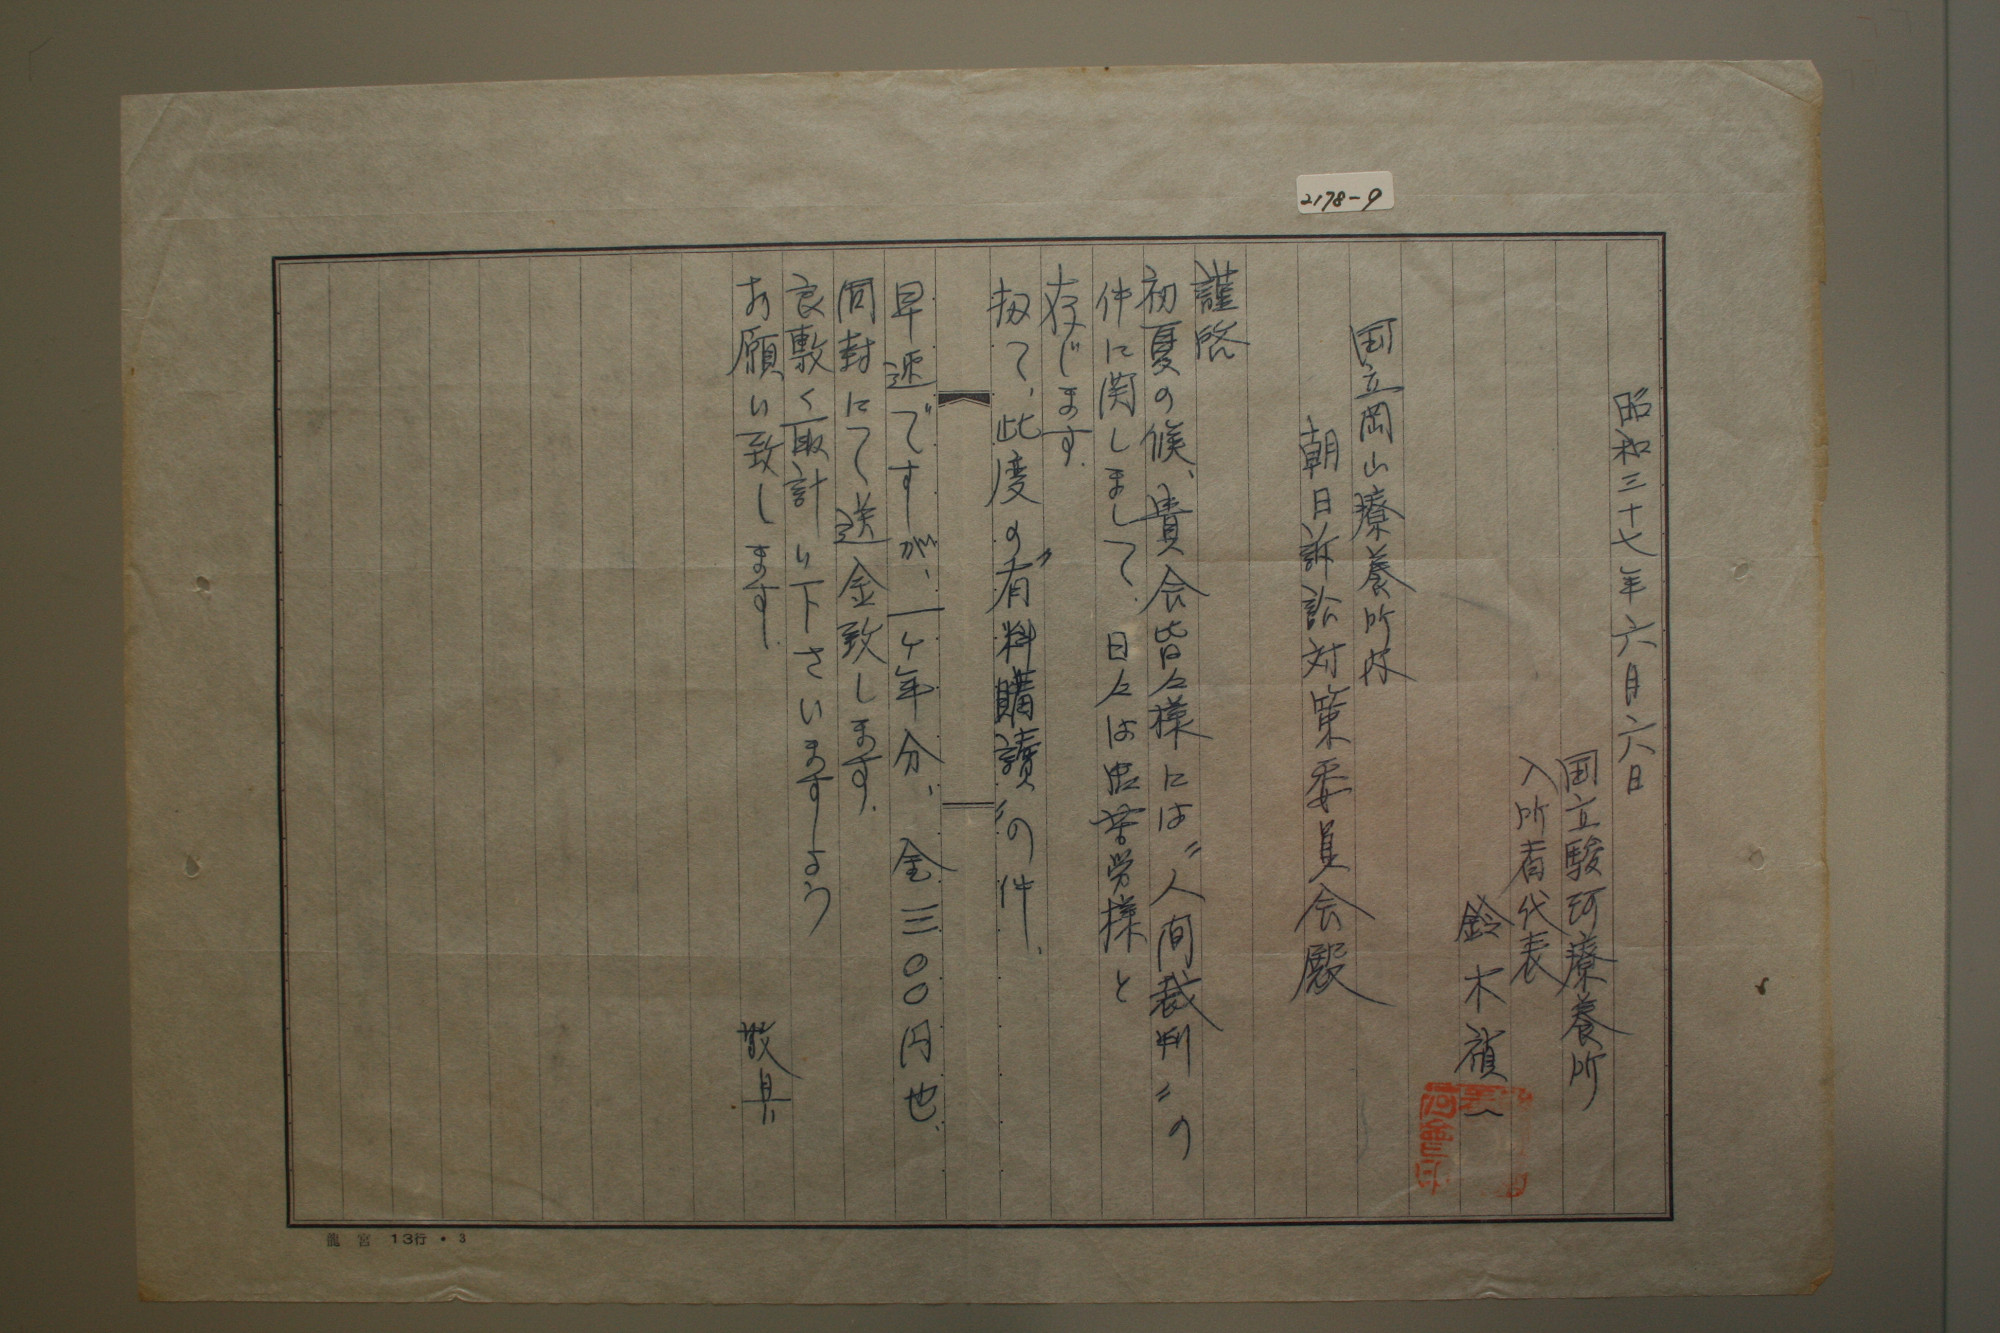 2178-9
昭和三十七年六月六日
国立駿河療養所
入所者代表
鈴木禎一
国立岡山療養所内
朝日訴訟対策委員会殿
謹啓
初夏の候、貴会皆々様には〝人間裁判〟の
件に関しまして、日々は御苦労様と
存じます。
扨て、此度の〝有料購読〟の件、
早速ですが、一ヶ年分、金三〇〇円也、
同封にて送金致します。
良敷く取計り下さいますよう
お願い致します。
敬具
龍宮 13行・3